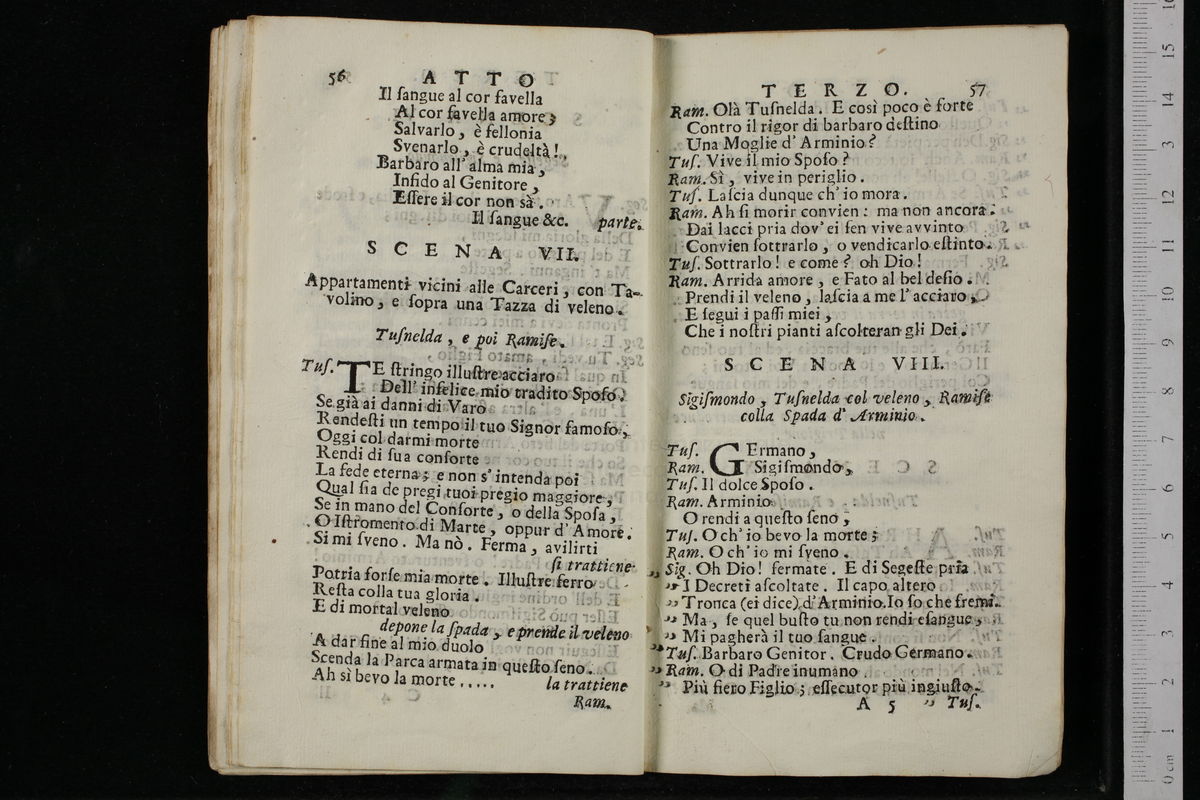 56 ATTO
Il ſangue al cor favella
Al cor favella amore;
Salvarlo, è fellonia
Svenarlo, è crudeltà!
Barbaro all'alma mia,
Infido al Genitore,
Eſſere il cor non sà.
Il ſangue &c. parte.
SCENA VII.
Appartamenti vicini alle Carceri, con Ta-
volino, e ſopra una Tazza di veleno.
Tuſnelda, e poi Ramiſe.
Tuſ. TE ſtringo illuſtre acciaro
Dell' infelice mio tradito Spoſo.
Se già ai danni di Varo
Rendeſti un tempo il tuo Signor famoſo,
Oggi col darmi morte
Rendi di ſua conſorte
La fede eterna; e non s' intenda poi
Qual ſia de pregi tuoi pregio maggiore,
Se in mano del Conſorte, o della Spoſa,
O Iſtromento di Marte, oppur d' Amore.
Si mi ſveno. Ma nò. Ferma, avilirti
ſi trattiene
Potria forſe mia morte. Illuſtre ferro
Reſta colla tua gloria.
E di mortal veleno
depone la ſpada, e prende il veleno
A dar fine al mio duolo
Scenda la Parca armata in queſto ſeno.
Ah sì bevo la morte ..... la trattiene
Ram.
TERZO. 57
Ram. Olà Tuſnelda. E così poco è forte
Contro il rigor di barbaro deſtino
Una Moglie d' Arminio?
Tuſ. Vive il mio Spoſo?
Ram. Sì, vive in periglio.
Tuſ. Laſcia dunque ch' io mora.
Ram. Ah ſi morir convien: ma non ancora.
Dai lacci pria dov' ei ſen vive avvinto
Convien ſottrarlo, o vendicarlo eſtinto.
Tuſ. Sottrarlo! e come? oh Dio!
Ram. Arrida amore, e Fato al bel deſio.
Prendi il veleno, laſcia a me l' acciaro,
E ſegui i paſſi miei,
Che i noſtri pianti aſcolteran gli Dei.
SCENA VIII.
Sigiſmondo, Tuſnelda col veleno, Ramiſe
colla Spada d' Arminio.
Tuſ. GErmano,
Ram. Sigiſmondo,
Tuſ. Il dolce Spoſo.
Ram. Arminio
O rendi a queſto ſeno,
Tuſ. O ch' io bevo la morte;
Ram. O ch' io mi ſveno.
„ Sig. Oh Dio! fermate. E di Segeſte pria
„ I Decreti aſcoltate. Il capo altero
„ Tronca (ei dice) d' Arminio. Io ſo che fremi.
„ Ma, ſe quel buſto tu non rendi eſangue,
„ Mi pagherà il tuo ſangue.
„ Tuſ. Barbaro Genitor. Crudo Germano.
„ Ram. O di Padre inumano
„ Più fiero Figlio; eſſecutor più ingiuſto.
A 5 „ Tuſ.